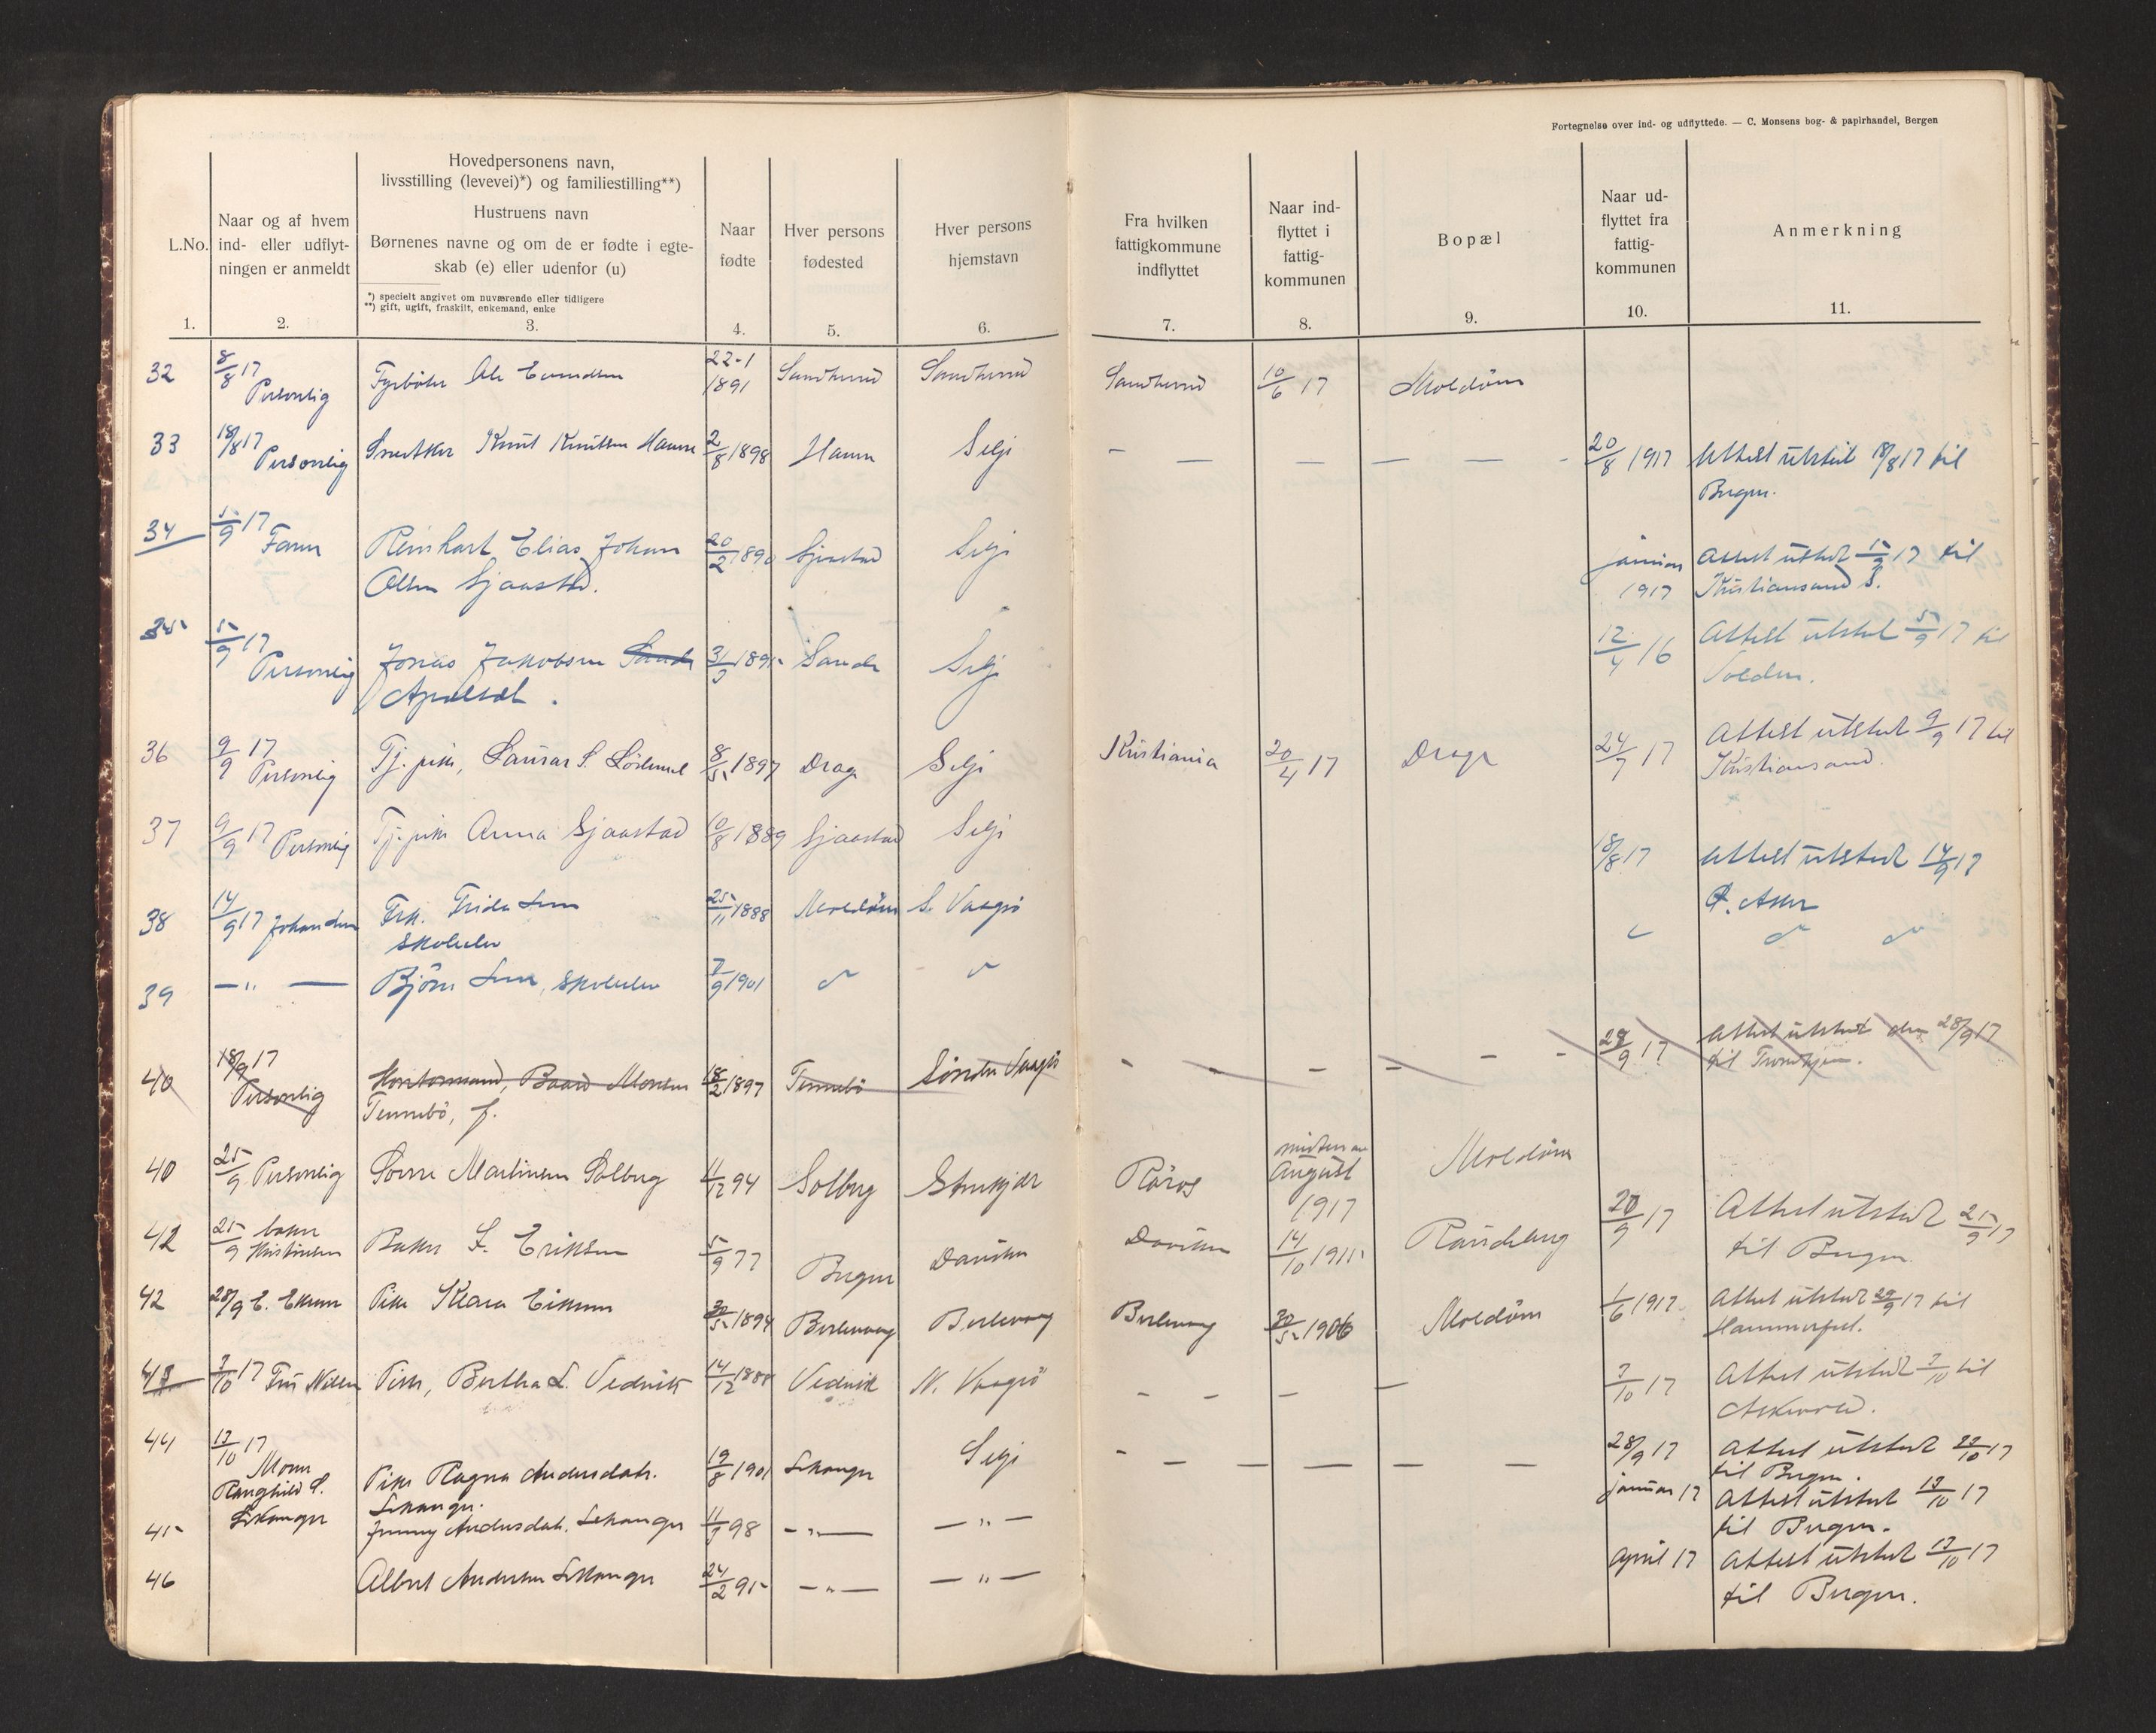 Fortegnelse over ind- og udflyttede. — C. Monsens bog- & papirhandel, Bergen
L.No.
1.
Naar og af hvem
ind- eller udflyt-
ningen er anmeldt
2.
Hovedpersonens navn,
livsstilling (levevei)*) og familiestilling**)
Hustruens navn
Børnenes navne og om de er fødte i egte-
skab (e) eller udenfor (u)
*) specielt angivet om nuværende eller tidligere
**) gift, ugift, fraskilt, enkemand, enke
3.
Naar
fødte
4.
Hver persons
fødested
5.
Hver persons
hjemstavn
6.
Fra hvilken
fattigkommune
indflyttet
7.
Naar ind-
flyttet i
fattig-
kommunen
8.
Bopæl
9.
Naar ud-
flyttet fra
fattig-
kommunen
10.
Anmerkning
11.
32 8/8 17 Personlig Fyrbøter Ole 22-1 1891 10/6 17 Moldöen
33 18/8 17 Personlig Snekker Knut Knutsen Havn 2/8 1898 Havn Selje — — — — — - 20/8 1917 Attest utsted 18/8 17 til
Bergen.
34 5/9 17 Faren Reinhart Elias Johan 20/2 1890 Sjaastad Selje januar 1917 Attest utstedt 5/9 17 til
Olsen Sjaastad. Kristiansand S.
35 5/9 17 Personlig Jonas Jakobsen Sande Sande Selje 12/4 16 Attest utsted 5/9 17 til
36 9/9 17 Personlig Tj. pike, 8/5 1897 Drage Selje Kristiania 20/4 17 Drage 24/7 17 Attest utstedt 9/9 17 til
Kristiansand.
37 9/9 17 Personlig Tj. pike Anna Sjaastad 10/8 1889 Sjaastad Selje 18/8 17 Attest utstedt 14/9 17
38 14/9 17 Frk. Frida 25/11 1888 Moldöen S. Vaagsö
Skoleelev
39 — " — Björn skoleelev 7/9 1901
40 18/9 17 Personlig Baard Monsen 18/2 1897 Tennebö Söndre Vaagsö - - - - - - 28/9 17 Attest utstedt den 28/9 17
Tennebö, f. til Trondhjem.
40 25/9 Personlig Martinsen Solberg 11/12 94 Solberg Stenkjær Röros midten av August 1917 Moldöen
42 25/9 Baker Kristiansen Baker Eriksen 5/9 77 Bergen Daviken Daviken 14/10 1915 Raudeberg 20/9 17 Attest utstedt 25/9 17
til Bergen.
42 28/9 E. Pike Klara 30/5 1894 Berlevaag Berlevaag Berlevaag 30/5 1906 Moldöen 1/6 1917 Attest utstedt 29/9 17 til
Hammerfest.
43 3/10 17 Pike, Bertha L. Vedvik 14/12 1888 Vedvik N. Vaagsö - - - - 3/10 17 Attest utstedt 3/10 til
Askevold.
44 13/10 17 Moren Ranghild S. Likanger Pike Ragna Andersdatr. 19/8 1901 Likanger Selje - — — — — — 28/9 17 Attest utstedt 13/10 17
Likanger. til Bergen.
45 Jenny Andersdatr. Likanger 98 — " — — " — januar 17 Attest utstedt 13/10 17
til Bergen.
46 Albert Andersen Likanger 24/2 95 — " — — " — April 17 Attest utstedt 13/10 17
til Bergen.